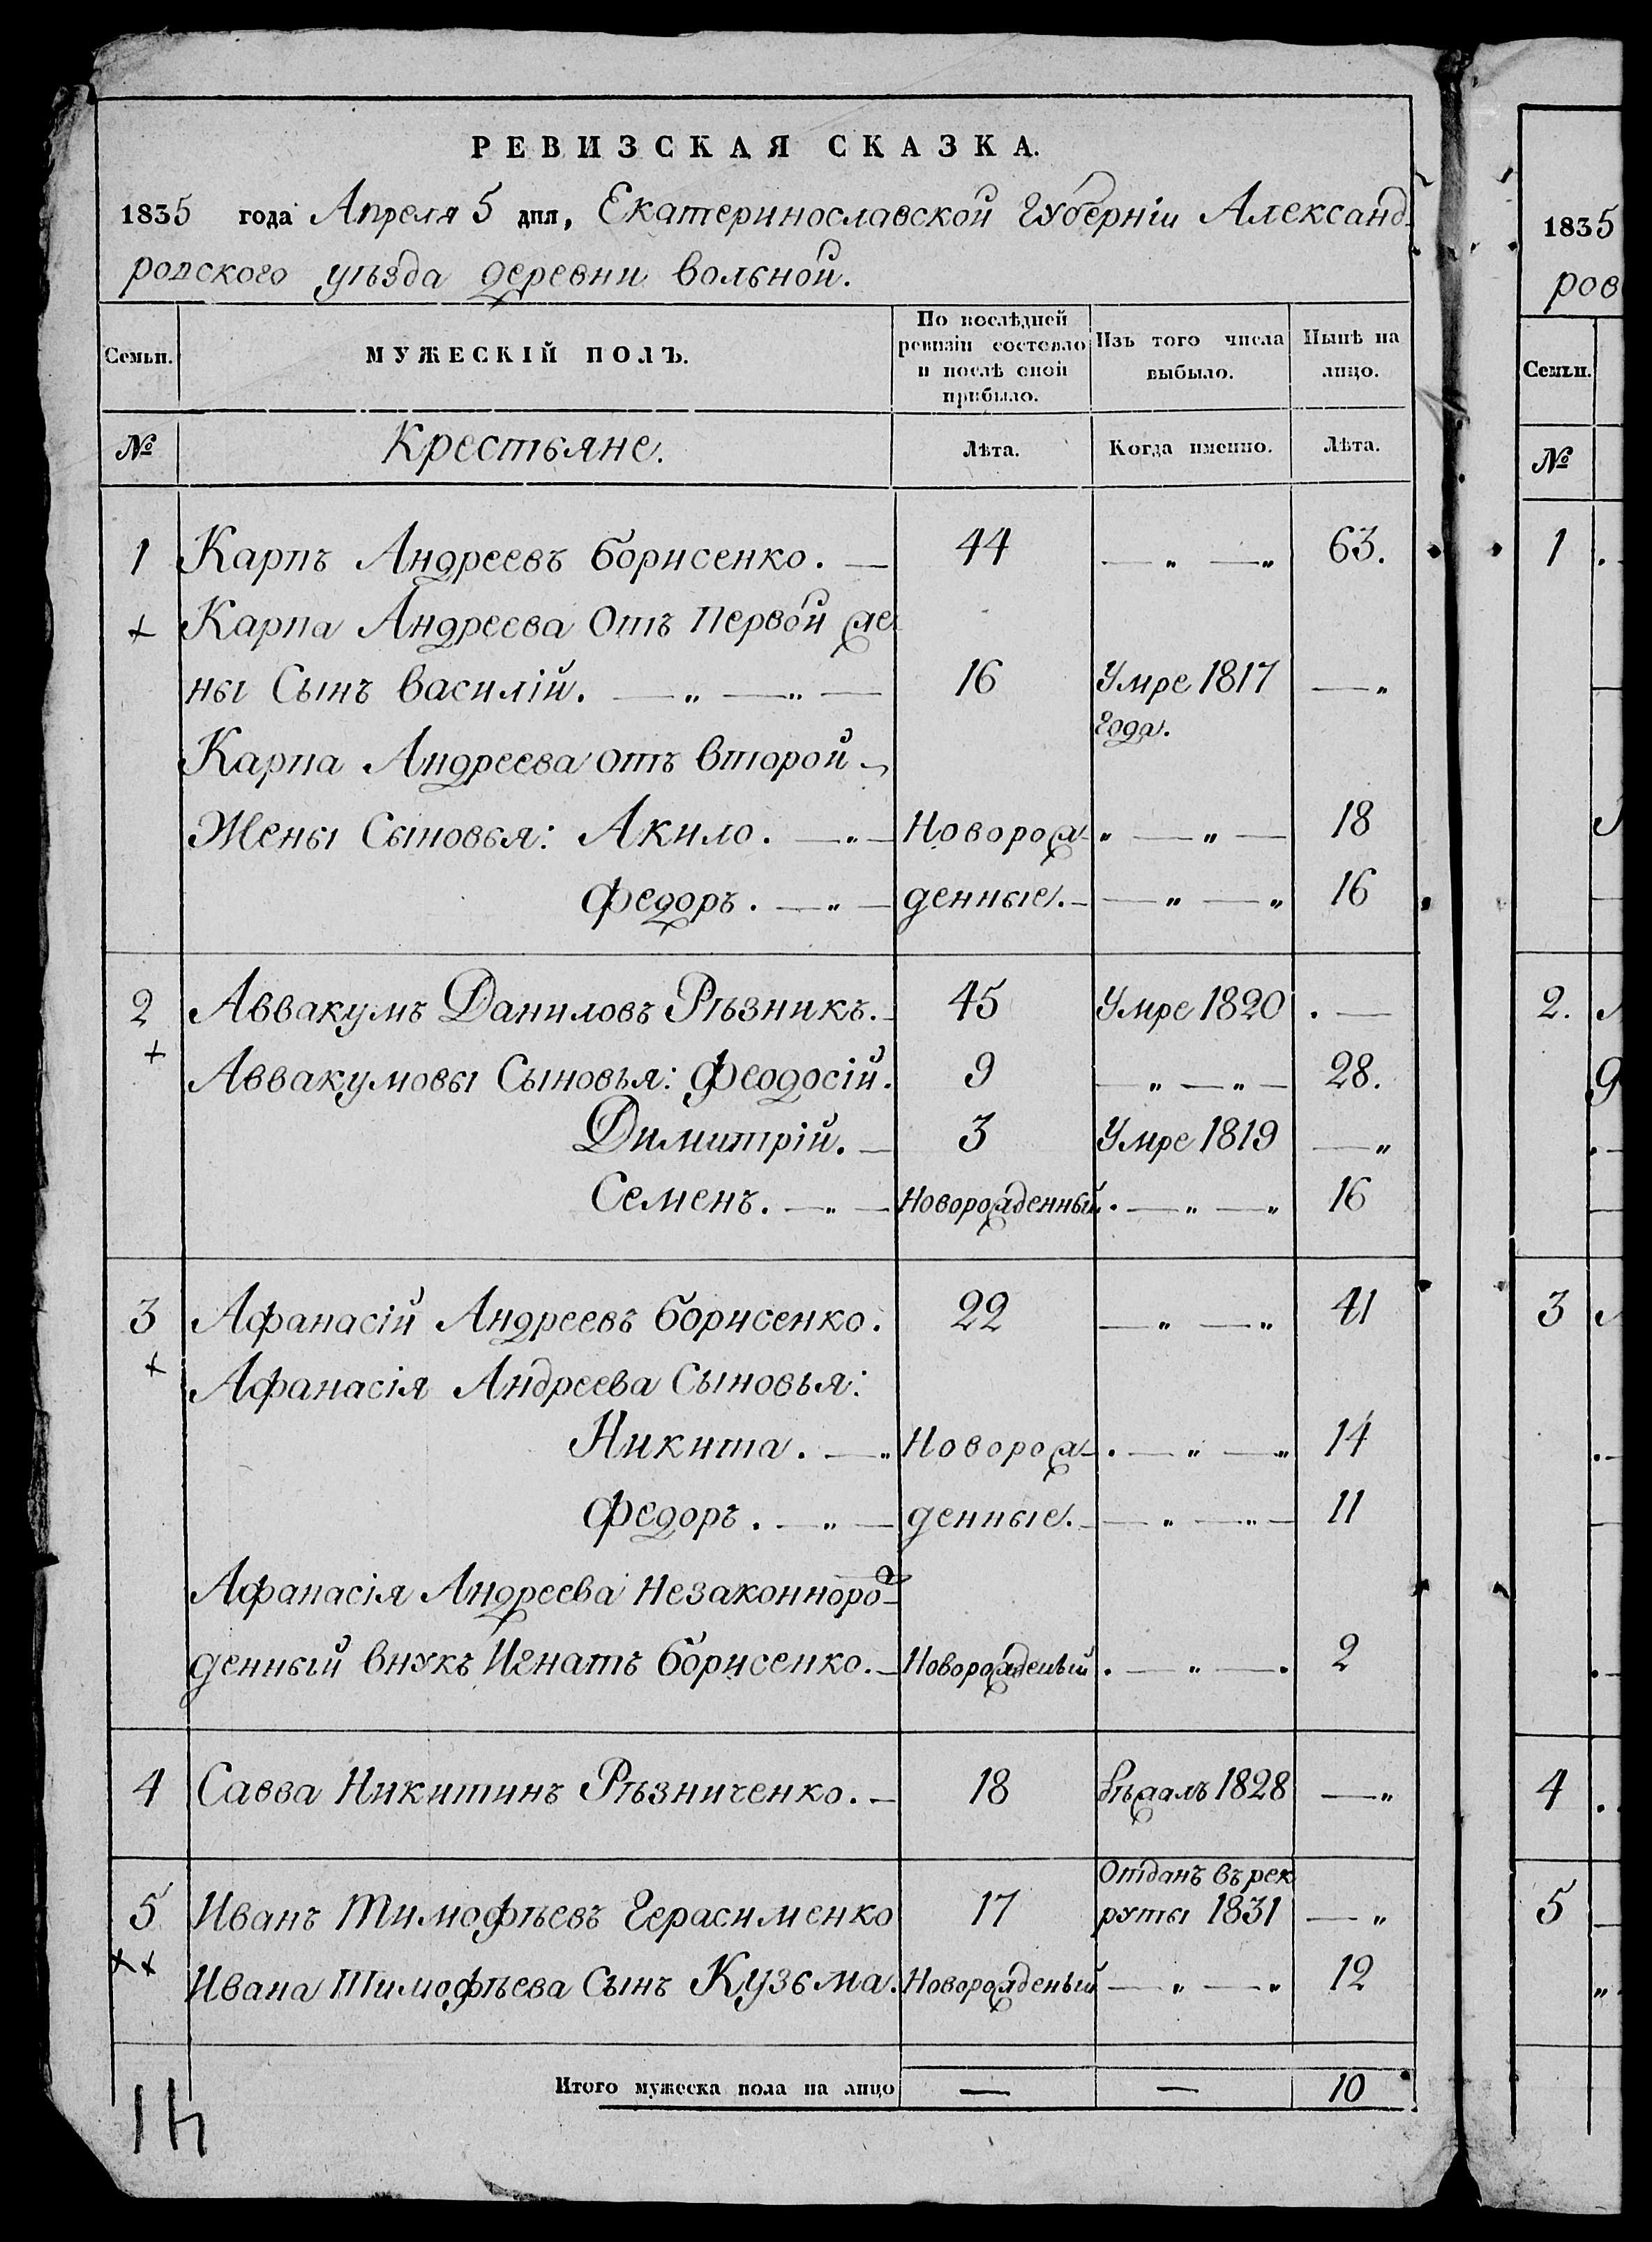 РЕВИЗСКАЯ СКАЗКА.
1835 года Апреля 5 дня, Екатеринославской Губерніи Александ-
ровского уѣзда деревни вольной.
Семьи. МУЖЕСКІЙ ПОЛЪ. По послѣдней ревизіи состояло и послѣ оной прибыло. Изъ того числа выбыло. Нынѣ на лицо.
№ Крестьяне. Лѣта. Когда именно. Лѣта.
1 Карпъ Андреевъ Борисенко. — 44 — „ — „ 63.
+ Карпа Андреева Отъ Первой же
ны Сынъ василій. — „ — „ — 16 Умре 1817 — „
года.
Карпа Андреева отъ второй
Жены Сыновья: Акило. — „ — Новорож- „ — „ — 18
Федоръ. — „ — денные. — — „ — „ 16
2 Аввакумъ Даниловъ Рѣзникъ. — 45 Умре 1820 . —
+ Аввакумовы Сыновья: Феодосій. 9 — „ — „ — 28.
Димитрій. — 3 Умре 1819 — „
Семенъ. — „ — Новорожденный . — „ — „ 16
3 Афанасій Андреевъ Борисенко. 22 — „ — „ 41
+ Афанасія Андреева Сыновья:
Никита. — „ Новорож- . — „ — „ 14
Федоръ. — „ — денные. — — „ — „ — 11
Афанасія Андреева Незаконнорож-
денный внукъ Игнатъ Борисенко. — Новорожденый . — „ — . 2
4 Савва Никитинъ Рѣзниченко. — 18 бѣжалъ 1828 — „
Отданъ въ рек
5 Иванъ Тимофѣевъ Герасименко 17 руты 1831 — „
++ Ивана Тимофѣева Сынъ Кузьма. Новорожденый — „ — „ 12
Итого мужеска пола на лицо — — 10
14
1835
ров
Семьи.
№
1
2.
3
4
5